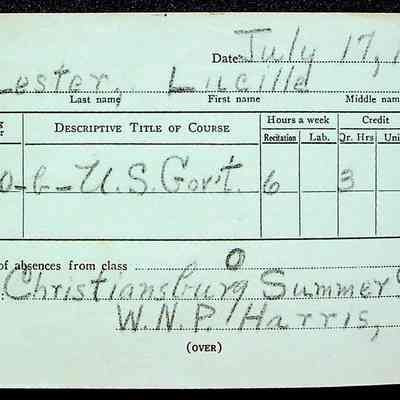 Date July 17, 1
Lester, Lucille
Last name First name Middle nam
Hours a week Credit
DESCRIPTIVE TITLE OF COURSE
Recitation Lab. Qr. Hrs Uni
0-6-U.S. Gov't. 6 3
of absences from class 0
Christiansburg Summer
W.N.P. Harris,
(OVER)